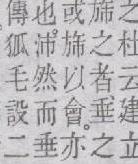 之杜云建立
旆之者垂之
或旆以會。亦
也沛然而垂
傳狐毛設二